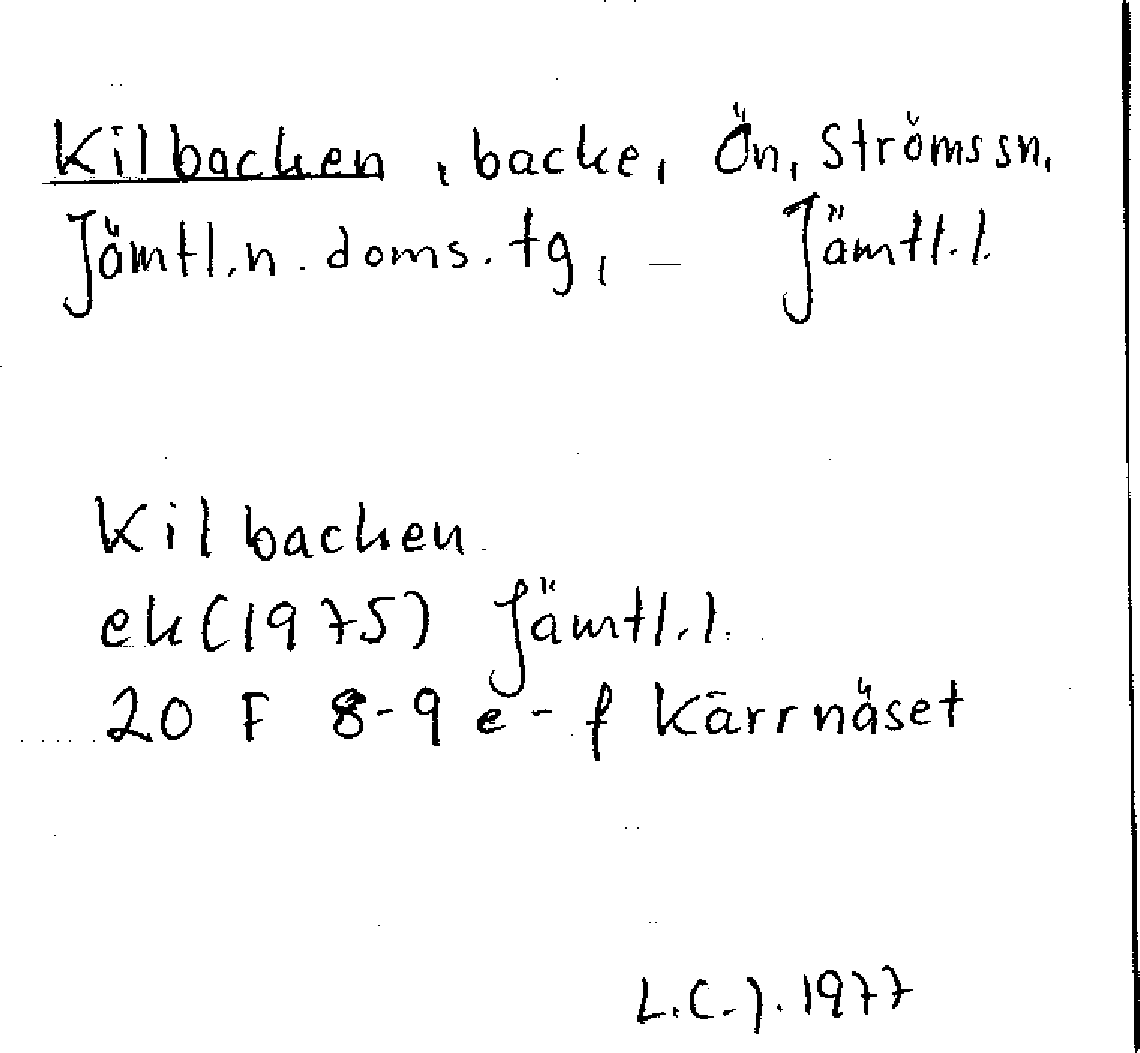 Kilbacken, backe, Ön, Ströms sn,
Jämtl. n. doms. tg, – Jämtl. l.
Kilbacken
ek (1975) Jämtl. l.
20 F 8-9 e-f Kärrnäset
L.C.J. 1977